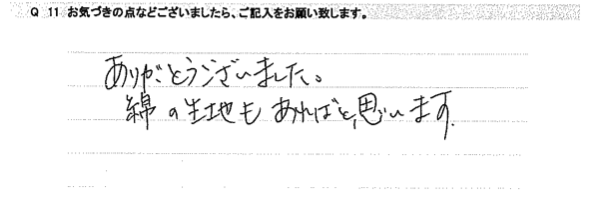 Q 11 お気づきの点などございましたら、ご記入をお願い致します。
ありがとうございました。
綿の生地もあればと思います.